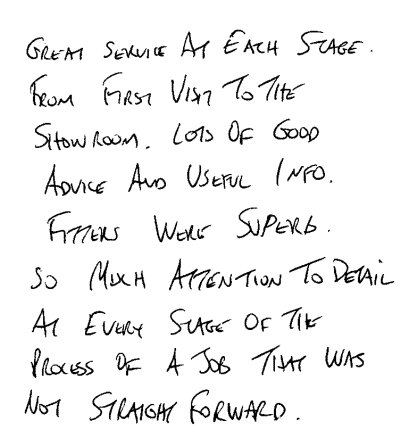 GREAT SERVICE AT EACH STAGE.
FROM FIRST VISIT TO THE
SHOWROOM. LOTS OF GOOD
ADVICE AND USEFUL INFO.
FITTERS WERE SUPERB.
SO MUCH ATTENTION TO DETAIL
AT EVERY STAGE OF THE
PROCESS OF A JOB THAT WAS
NOT STRAIGHT FORWARD.